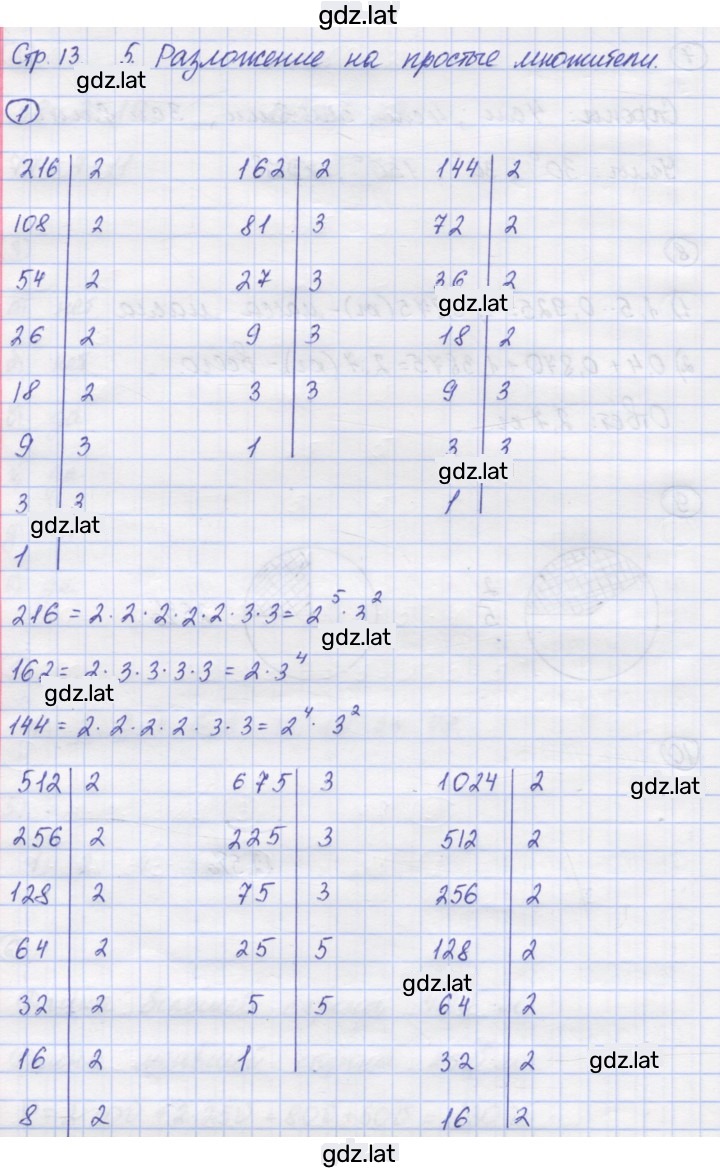 gdz.lat
Стр. 13 5. Разложение на простые множители.
gdz.lat
1
216 | 2 162 | 2 144 | 2
108 | 2 81 | 3 72 | 2
54 | 2 27 | 3 36 | 2
gdz.lat
26 | 2 9 | 3 18 | 2
18 | 2 3 | 3 9 | 3
9 | 3 1 | 3 | 3
gdz.lat
3 | 3 1 |
gdz.lat
1 |
216 = 2·2·2·2·2·3·3 = 2⁵·3²
gdz.lat
162 = 2·3·3·3·3 = 2·3⁴
gdz.lat
144 = 2·2·2·2·3·3 = 2⁴·3²
512 | 2 675 | 3 1024 | 2
gdz.lat
256 | 2 225 | 3 512 | 2
128 | 2 75 | 3 256 | 2
64 | 2 25 | 5 128 | 2
gdz.lat
32 | 2 5 | 5 64 | 2
16 | 2 1 | 32 | 2
gdz.lat
8 | 2 16 | 2
gdz.lat